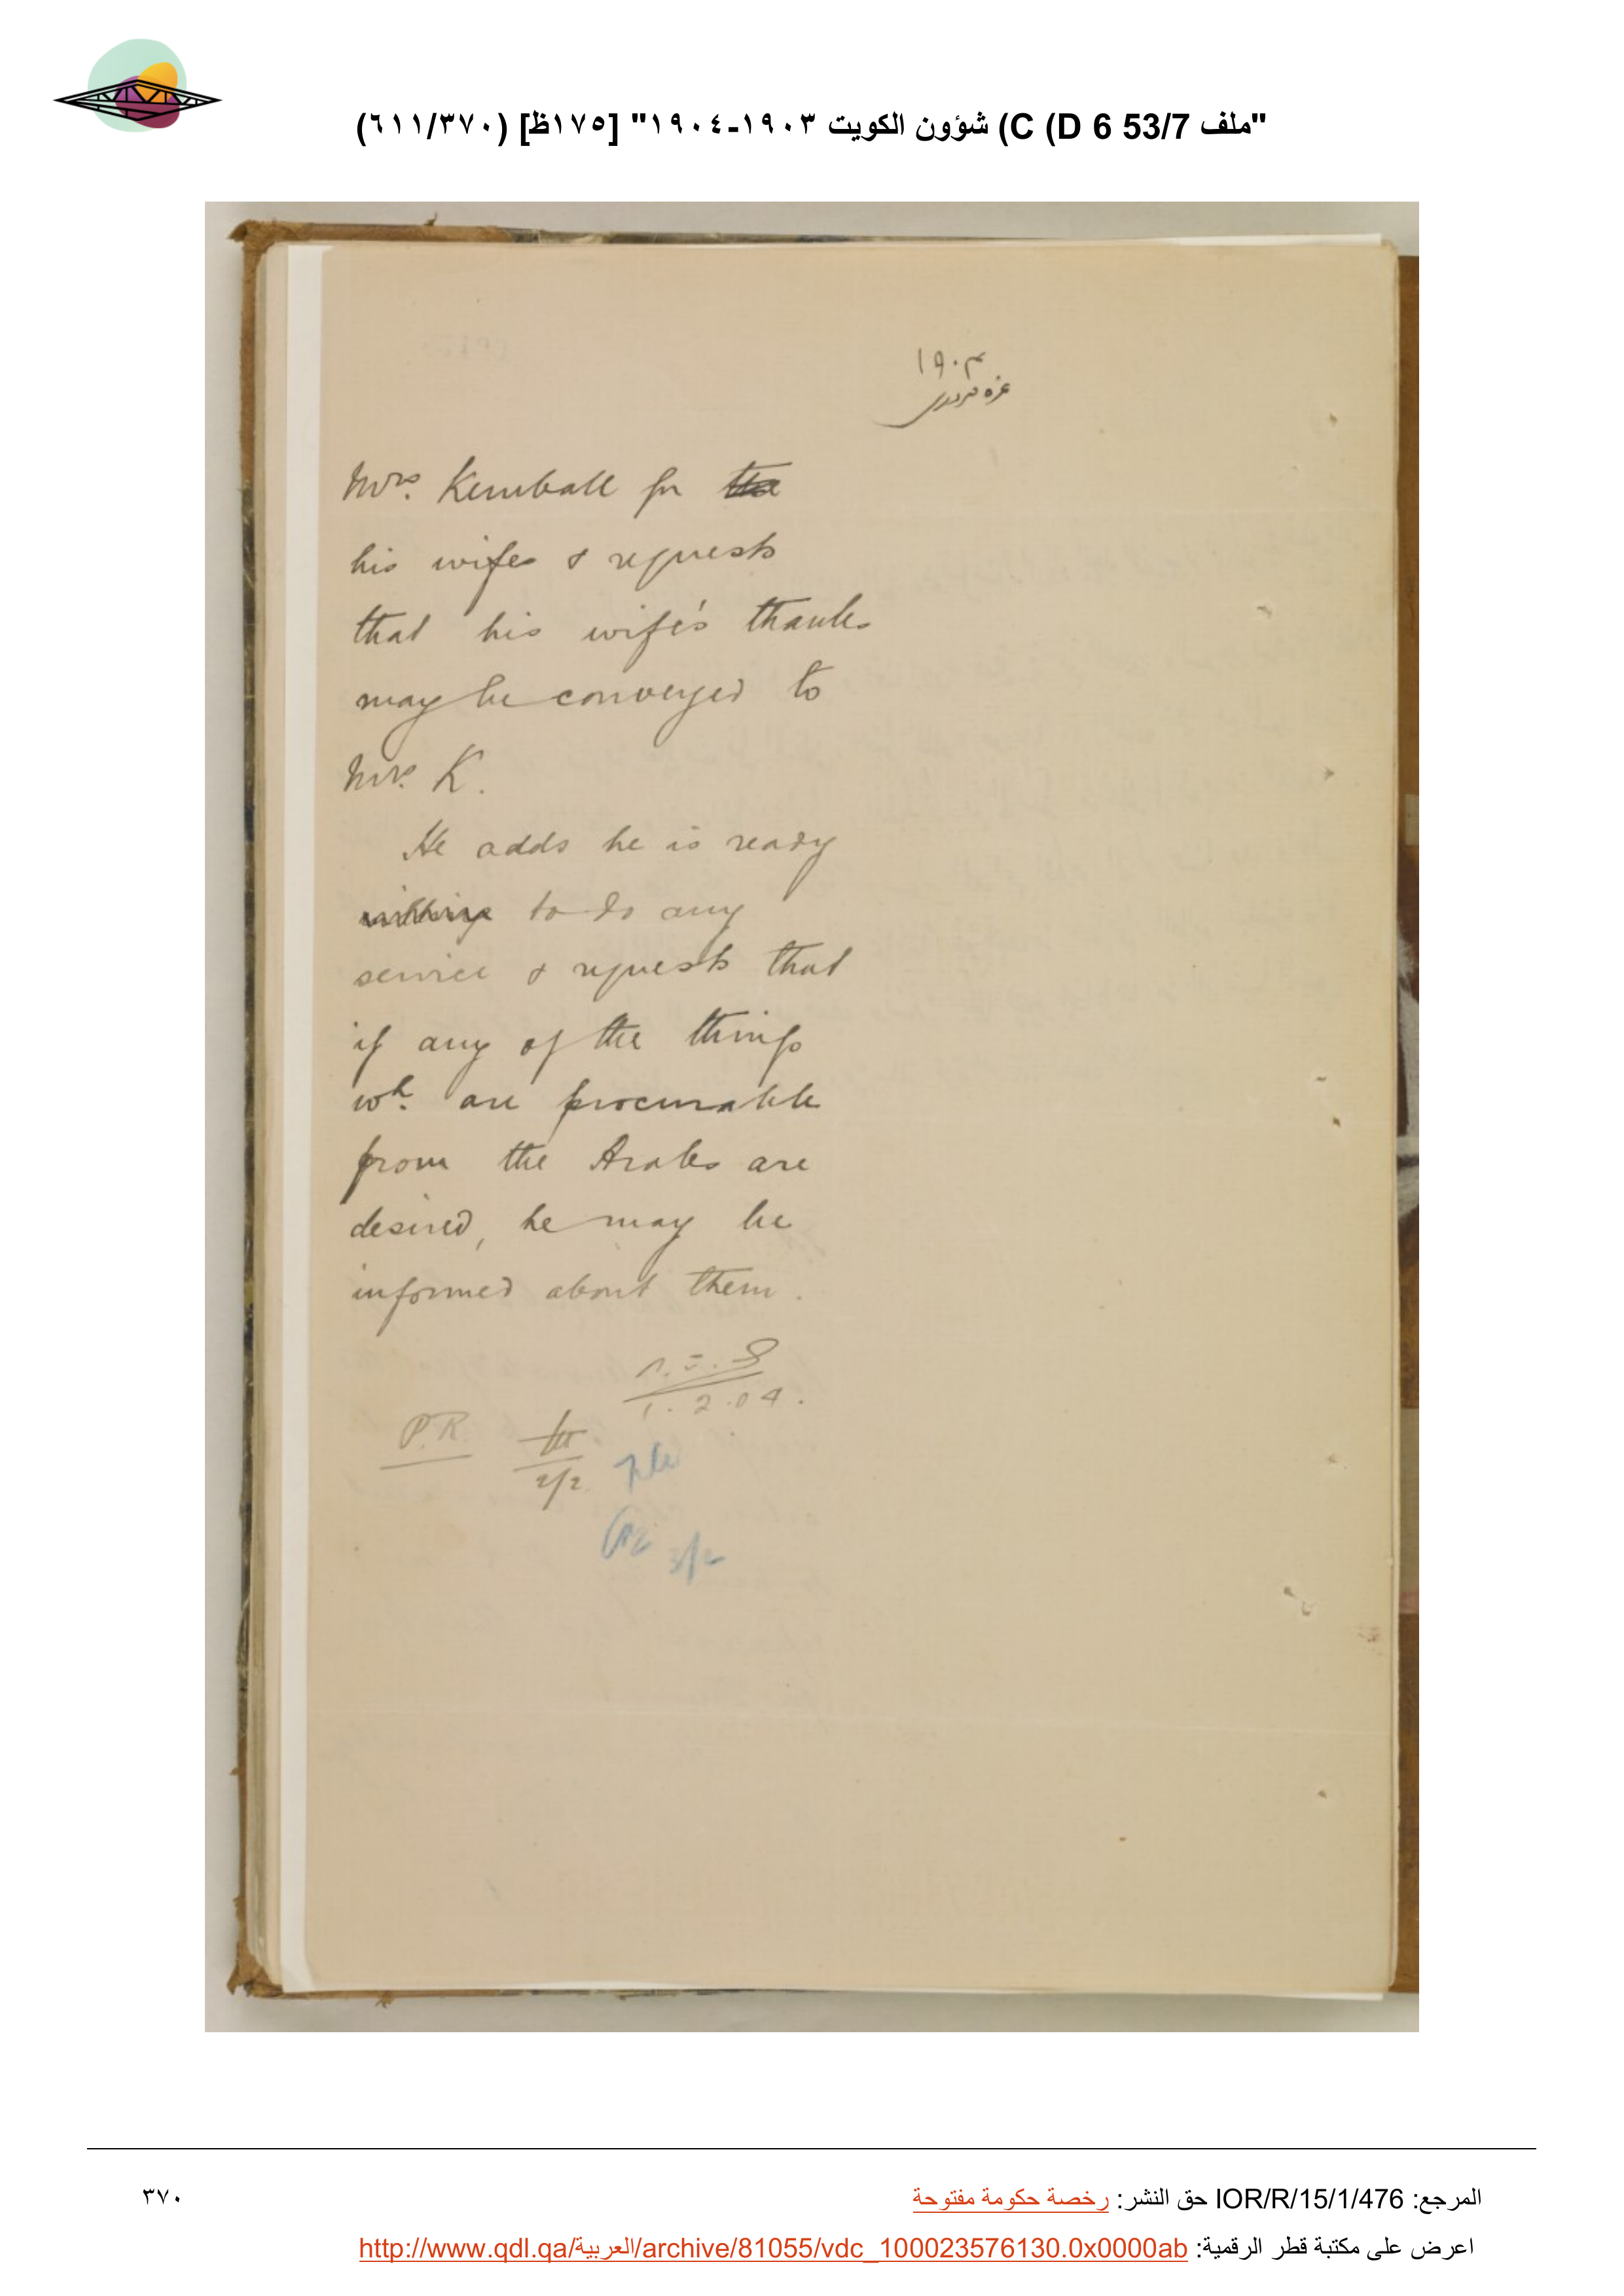 "ملف 53/7 C (D 6) شؤون الكويت ١٩٠٣-١٩٠٤" [١٧٥ظ] (٦١١/٣٧٠)
١٩٠٣
Mrs. Kemball for the
his wifes & requests
that his wife's thanks
may be conveyed to
Mrs. K.
He adds he is ready
willing to do any
service & requests that
if any of the things
wh. are procurable
from the Arabs are
desired, he may be
informed about them.
1.2.04.
P.R.
2/2
file
3/2
المرجع: IOR/R/15/1/476 حق النشر: رخصة حكومة مفتوحة
٣٧٠
اعرض على مكتبة قطر الرقمية: http://www.qdl.qa/العربية/archive/81055/vdc_100023576130.0x0000ab